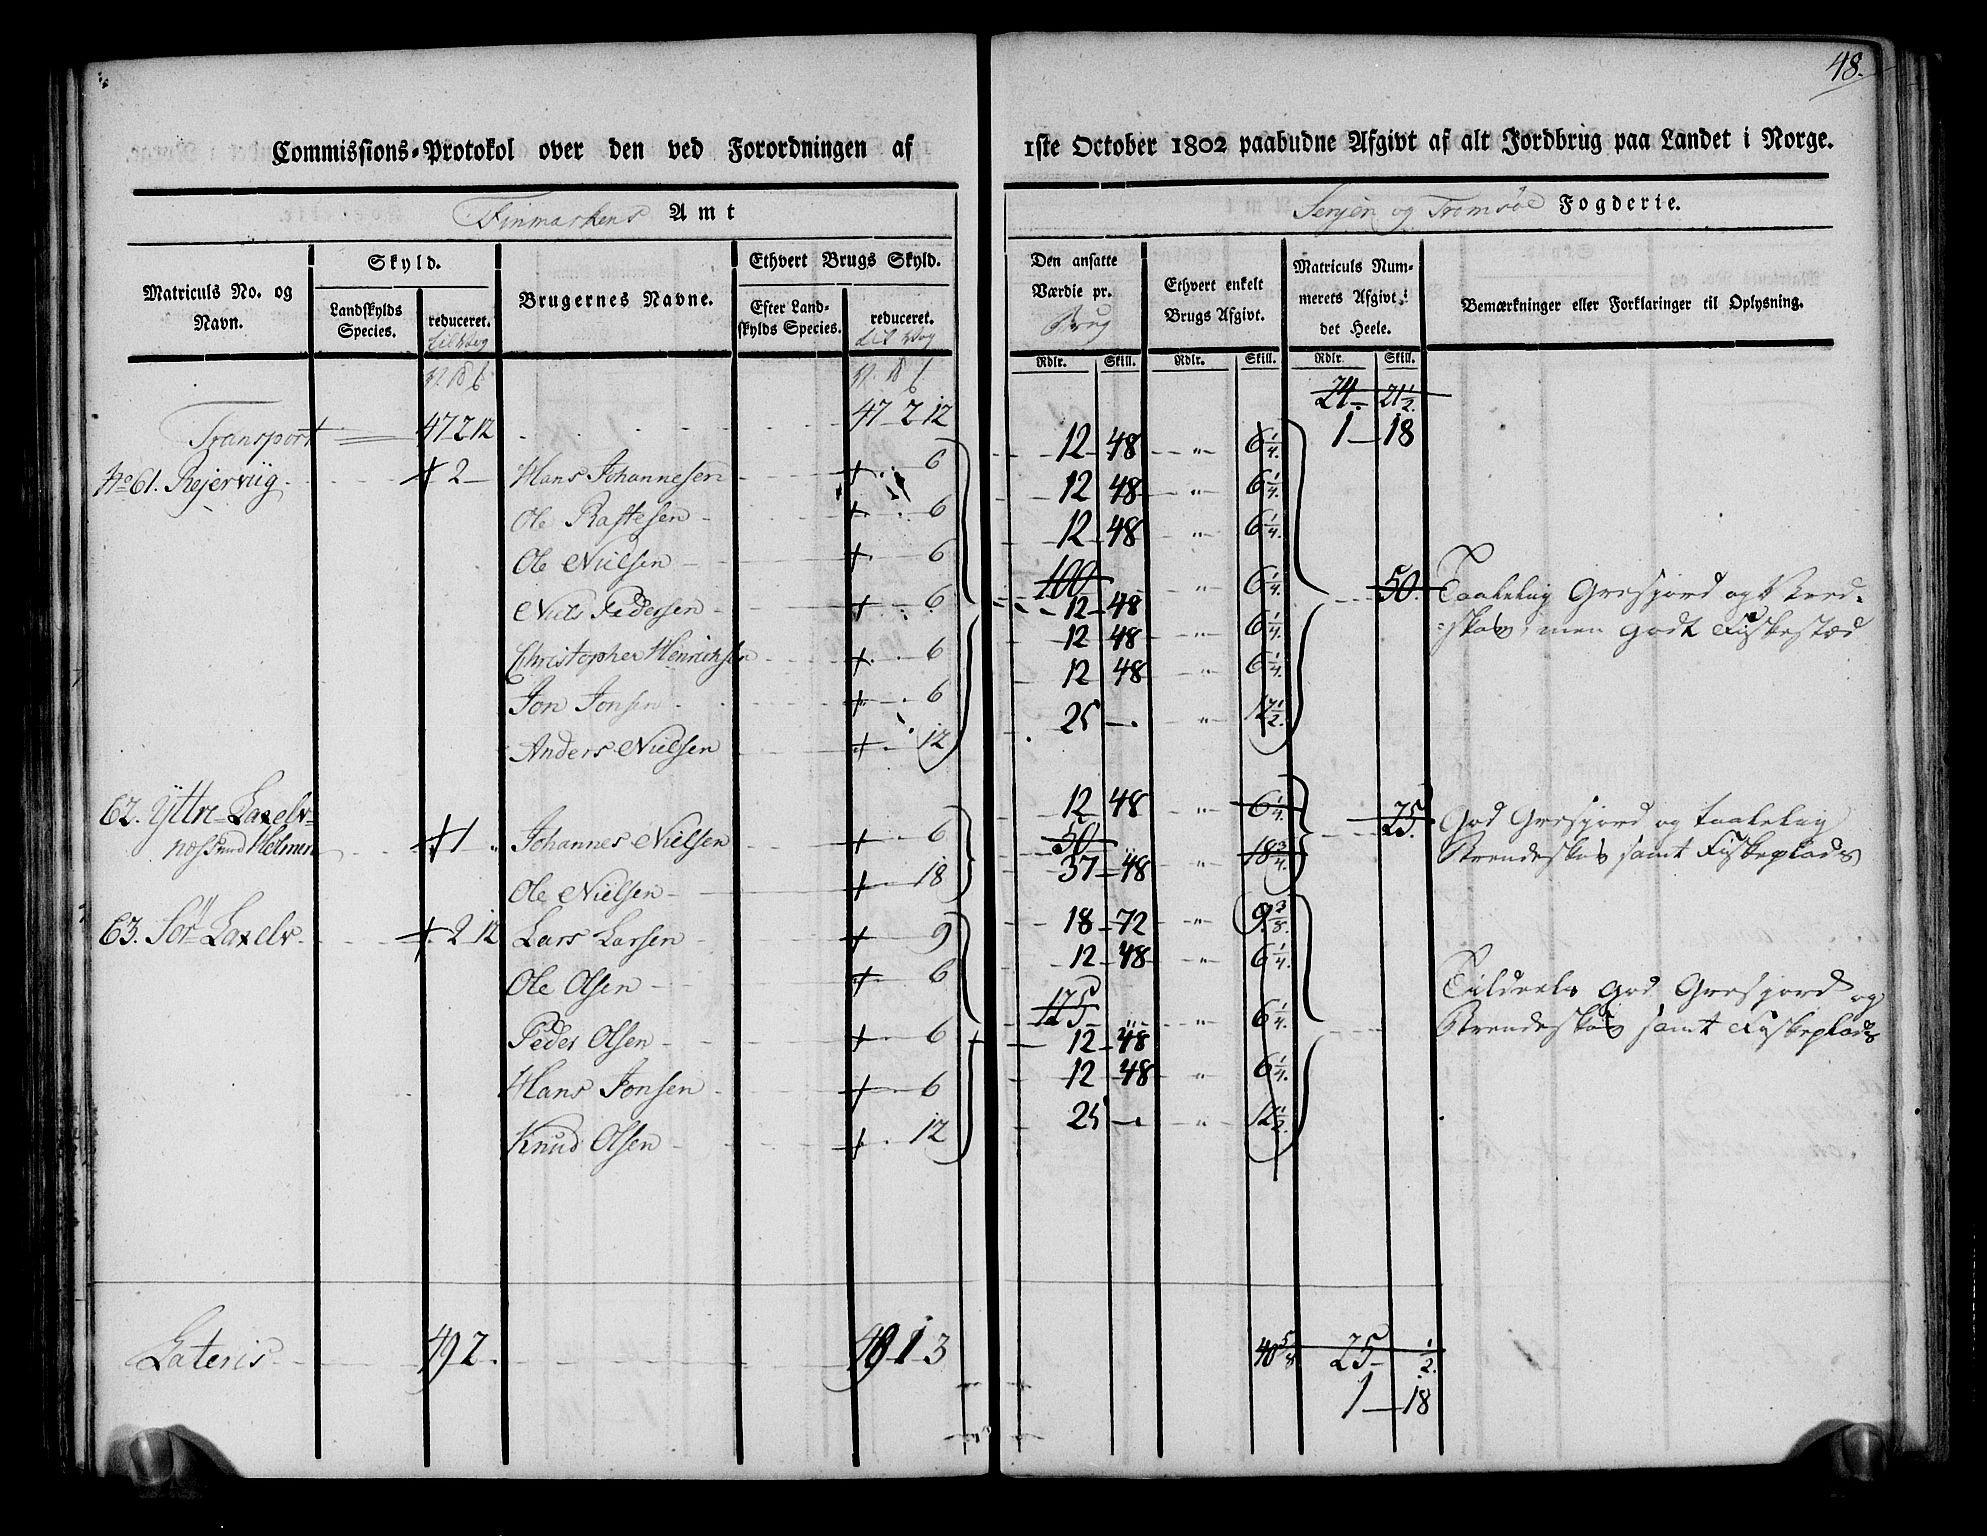 48.
Commissions-Protokol over den ved Forordningen af 1ste October 1802 paabudne Afgivt af alt Jordbrug paa Landet i Norge.
Finmarkens Amt Senjen og Tromsöe Fogderie.
Matriculs No. og Navn.
Skyld.
Landskylds Species.
reduceret.
Brugernes Navne.
Ethvert Brugs Skyld.
Efter Landskylds Species.
reduceret.
Den ansatte Værdie pr. Brug
Ethvert enkelt Brugs Afgivt.
Matriculs Nummerets Afgivt i det Heele.
Bemærkninger eller Forklaringer til Oplysning.
Rdlr. Skill. Rdlr. Skill. Rdlr. Skill.
24 21 1/2
Transport 47 2 12 47 2 12 1 18
No 61. Rejervüg 2 Hans Johannesen 6 12 48 " 6 1/4
Ole Rastesen 6 12 48 " 6 1/4
Ole Nielsen 6 12 48 " 6 1/4
Niels Pedersen 6 100 12 48 " 6 1/4 50. Taalelig Gresjord og
men godt Fiskestæd
Christopher Henrichsen 6 12 48 " 6 1/4
Jon Jonsen 6 12 48 " 6 1/4
Anders Nielsen 12 25 " 12 1/2
62. Yttre Laxelv
næs und Holmen 1 Johannes Nielsen 6 12 48 " 6 1/4 25 God Gresjord og taalelig
Ole Nielsen 18 50 37 48 " 18 3/4 Brendeskov samt Fiskeplads
63. Sör Laxelv 2 12 Lars Larsen 9 18 72 " 9 3/8
Ole Olsen 6 12 48 " 6 1/4
Peder Olsen 6 125 12 48 " 6 1/4 Tildeels God Gresjord og
Brendeskov samt Fiskeplads
Hans Jonsen 6 12 48 " 6 1/4
Knud Olsen 12 25 " 12 1/2
Lateris 49 2 49 1 3 40 5/8 25 1/2
1 18